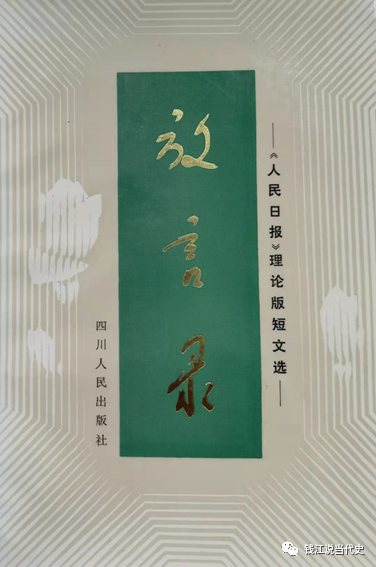 放言录
——《人民日报》理论版短文选——
四川人民出版社
钱江说当代史